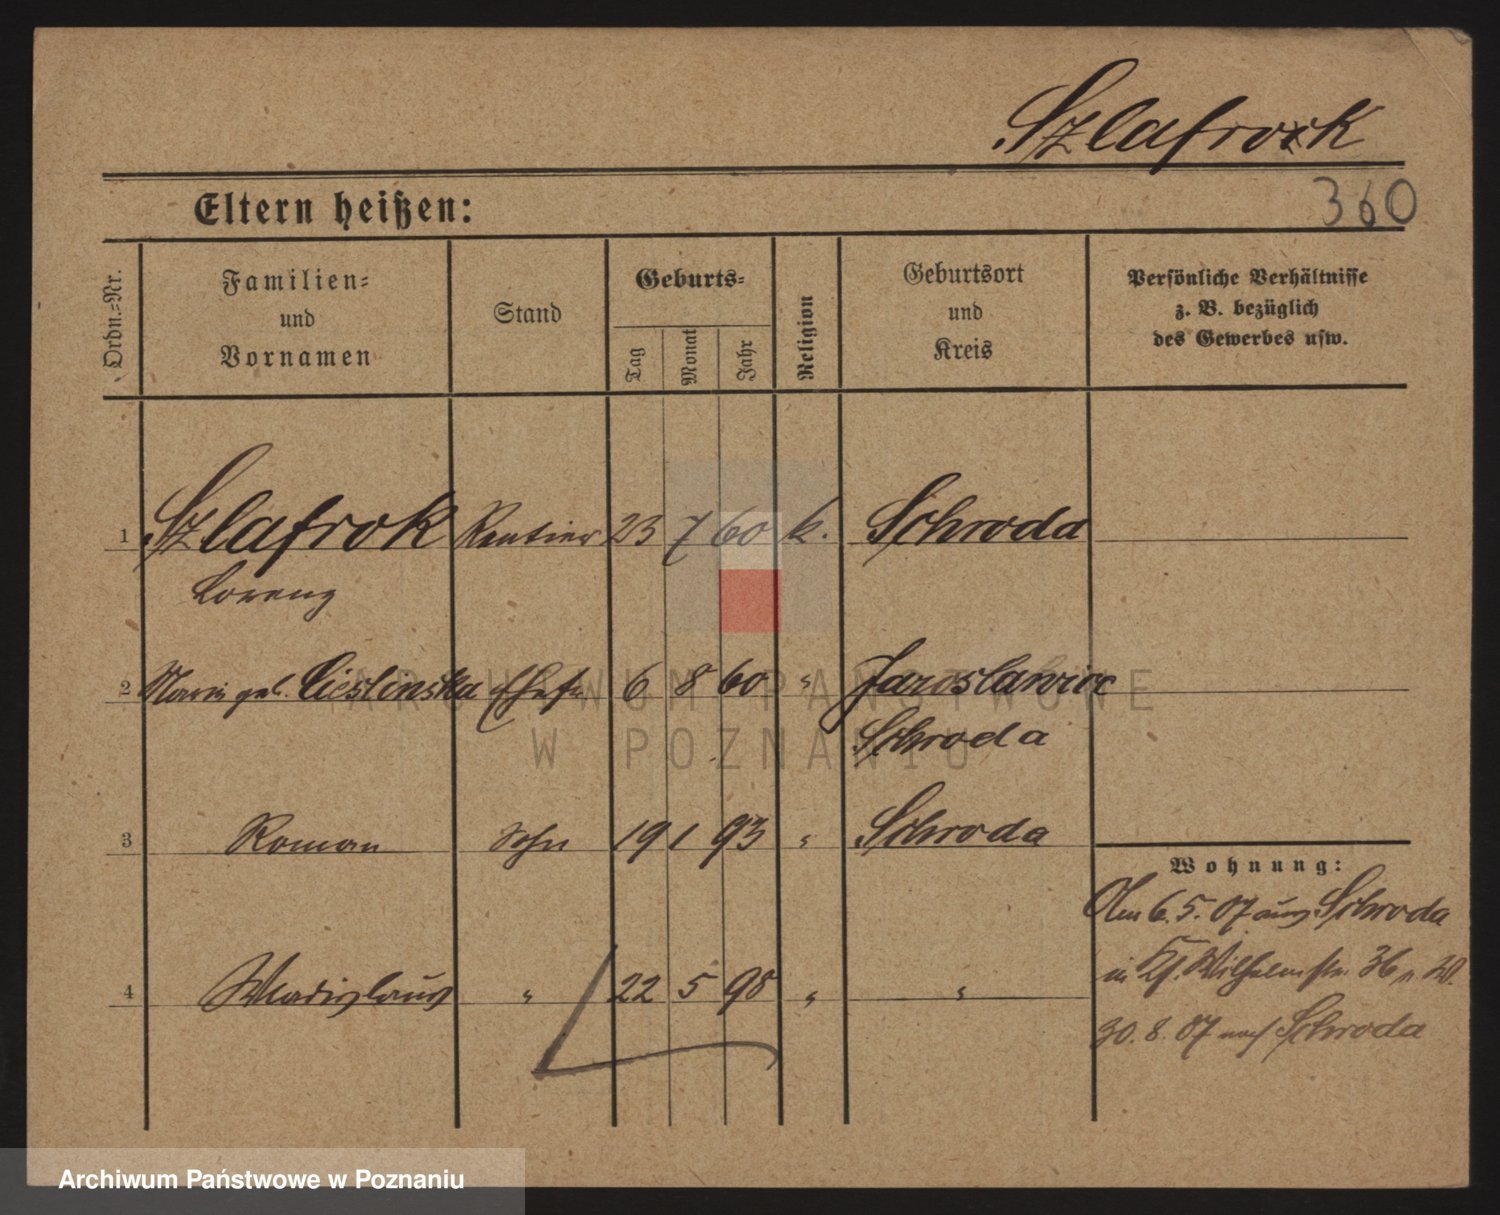 Szlafrock
Eltern heißen:
360
Ordn.-Nr.
Familien-
und
Vornamen
Stand
Geburts-
Tag
Monat
Jahr
Religion
Geburtsort
und
Kreis
Persönliche Verhältnisse
z. B. bezüglich
des Gewerbes usw.
1 Szlafrok Rentier 23 7 60 k. Schroda
Lorenz
2 Maria geb. Cieslinska Ehefr 6 8 60 " Jaroslawiec
Schroda
3 Roman Sohn 19 1 93 " Schroda
Wohnung:
Am 6. 5. 07 aus Schroda
4 Wladislaus " 22 5 98 " "
in Wilhelmstr 36
30. 8. 07 nach Schroda
ARCHIWUM PAŃSTWOWE
W POZNANIU
Archiwum Państwowe w Poznaniu